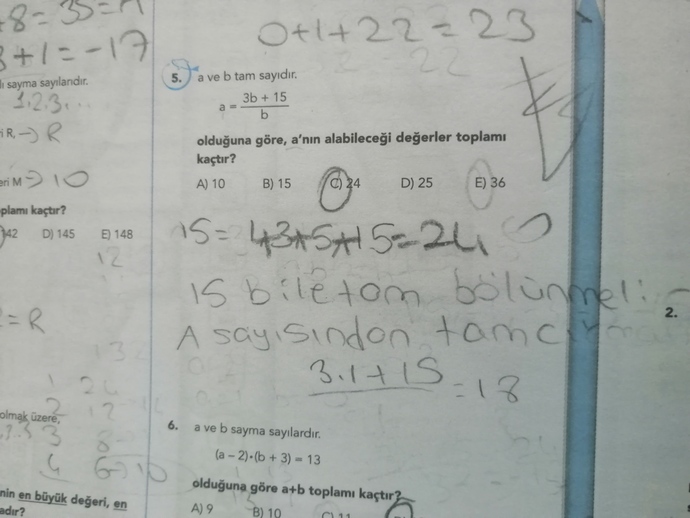 +8 = 35 =
3+1 = -17
lı sayma sayılarıdır.
1,2,3,...
i R, → R
eri M → 10
plamı kaçtır?
142 D) 145 E) 148
12
= R
olmak üzere,
nin en büyük değeri, en
adır?
0+1+22 = 23
5. a ve b tam sayıdır.
a = 3b + 15 / b
olduğuna göre, a'nın alabileceği değerler toplamı
kaçtır?
A) 10 B) 15 C) 24 D) 25 E) 36
15 = 1+3+5+15 = 24
15 bile tam bölünmeli
A sayısından tam
3.1+15 = 18
6. a ve b sayma sayılardır.
(a – 2)·(b + 3) = 13
olduğuna göre a+b toplamı kaçtır?
A) 9 B) 10 C) 11
2.